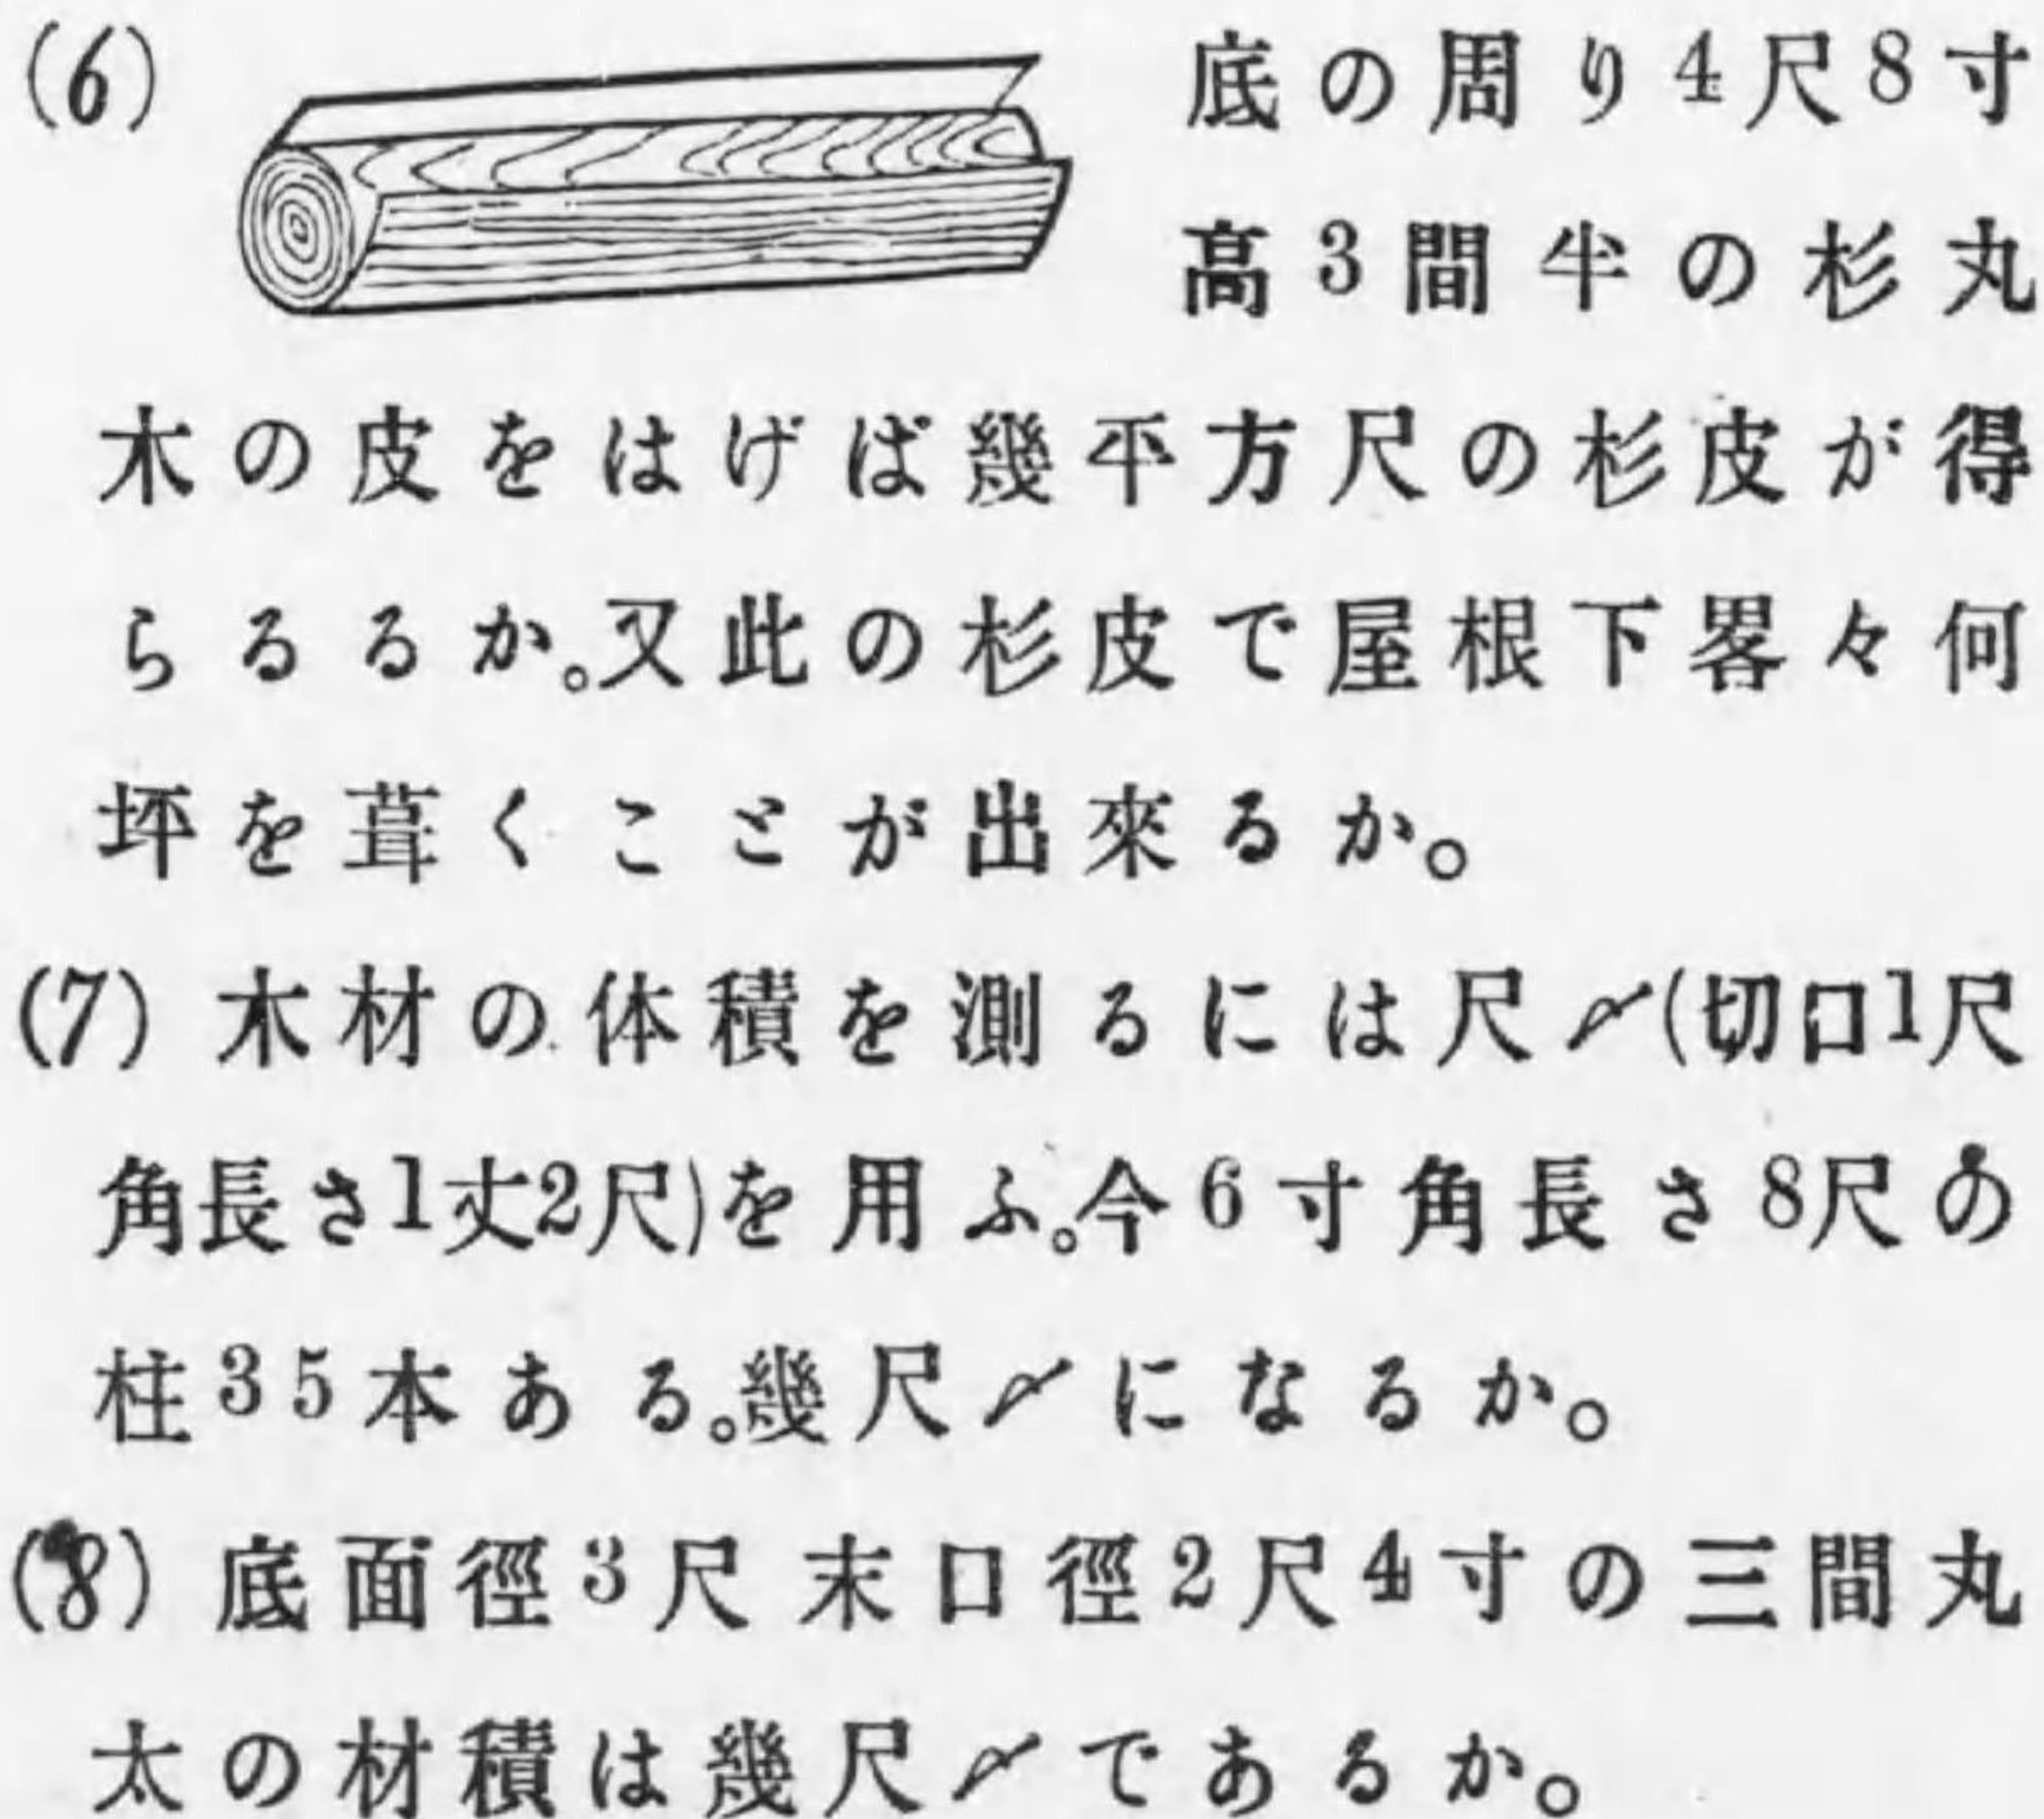 (6) 底の周り4尺8寸
高3間半の杉丸
木の皮をはげば幾平方尺の杉皮が得
らるるか。又此の杉皮で屋根下畧々何
坪を葺くことが出來るか。
(7) 木材の体積を測るには尺〆(切口1尺
角長さ1丈2尺)を用ふ。今6寸角長さ8尺の
柱35本ある。幾尺〆になるか。
(8) 底面徑3尺末口徑2尺4寸の三間丸
太の材積は幾尺〆であるか。